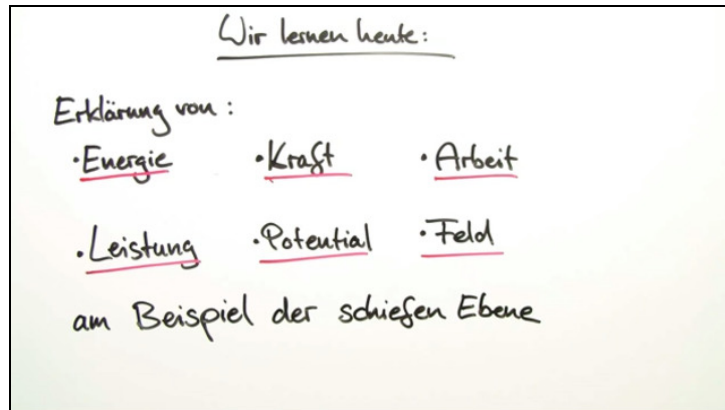 Wir lernen heute:
Erklärung von:
· Energie · Kraft · Arbeit
· Leistung · Potential · Feld
am Beispiel der schiefen Ebene